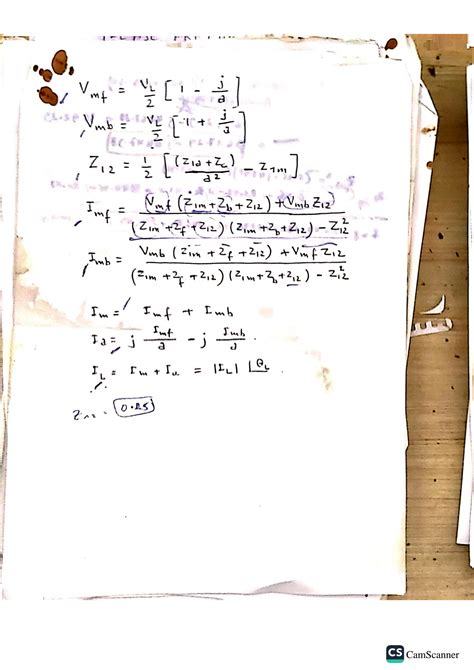 V_mf = V_L/2 [ 1 - j/a ]
V_mb = V_L/2 [ 1 + j/a ]
Z_12 = 1/2 [ (Z_1a + Z_c)/a² - Z_1m ]
I_mf = (V_mf (Z_1m + Z_b + Z_12) + V_mb Z_12) / ((Z_1m + Z_f + Z_12) (Z_1m + Z_b + Z_12) - Z_12²)
I_mb = (V_mb (Z_1m + Z_f + Z_12) + V_mf Z_12) / ((Z_1m + Z_f + Z_12) (Z_1m + Z_b + Z_12) - Z_12²)
I_m = I_mf + I_mb
I_a = j I_mf/a - j I_mb/a
I_L = I_m + I_a = |I_L| ∠θ_L
0.25
CS CamScanner